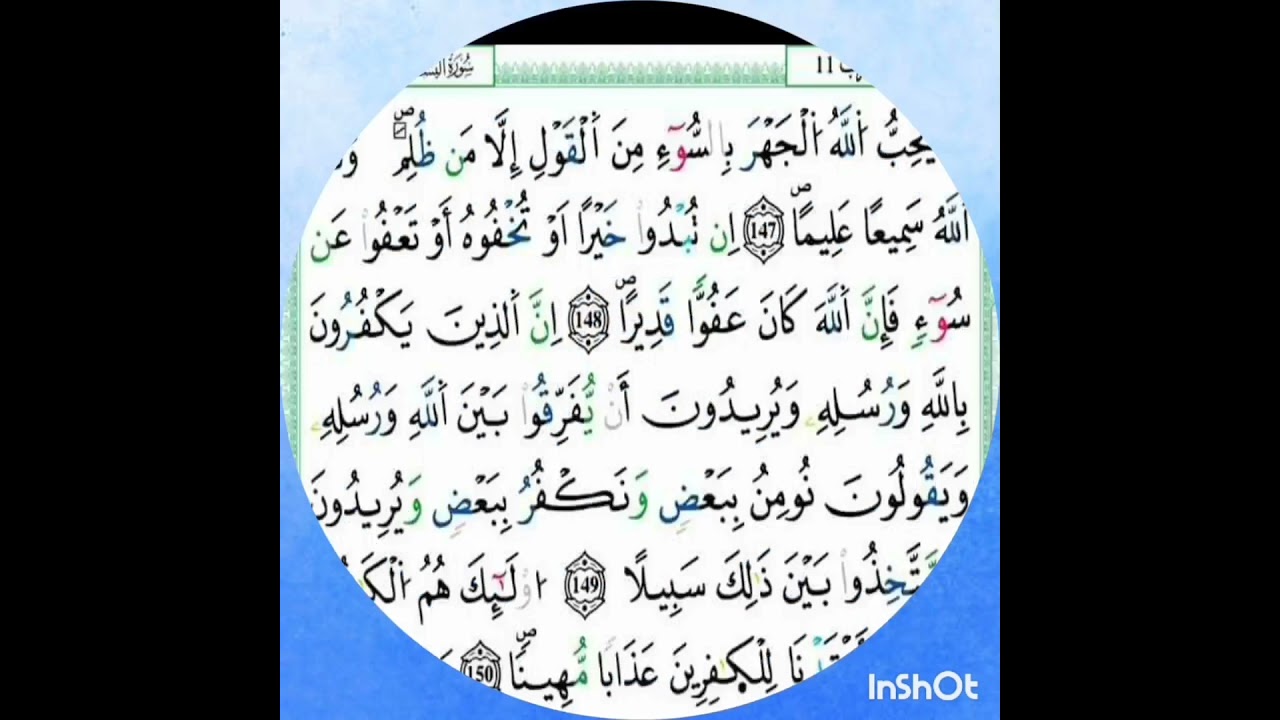 سُورَةُ
11
يُحِبُّ اُ۬للَّهُ اُ۬لْجَهْرَ بِالسُّوٓءِ مِنَ اَ۬لْقَوْلِ إِلَّا مَن ظُلِمَۖ
اَ۬للَّهُ سَمِيعًا عَلِيمًاۖ 147 اِن تُبْدُواْ خَيْرًا اَوْ تُخْفُوهُ أَوْ تَعْفُواْ عَن
سُوٓءٍ فَإِنَّ اَ۬للَّهَ كَانَ عَفُوًّا قَدِيرًاۖ 148 اِنَّ اَ۬لذِينَ يَكْفُرُونَ
بِاللَّهِ وَرُسُلِهِۦ وَيُرِيدُونَ أَنْ يُّفَرِّقُواْ بَيْنَ اَ۬للَّهِ وَرُسُلِهِۦ
وَيَقُولُونَ نُومِنُ بِبَعْضٍ وَنَكْفُرُ بِبَعْضٍ وَيُرِيدُونَ
بَيْنَ ذَٰلِكَ سَبِيلًا 149 ا۟وْلَٰٓئِكَ هُمُ
لِلْكٰ۪فِرِينَ عَذَابًا مُّهِينًاۖ 150
InShOt